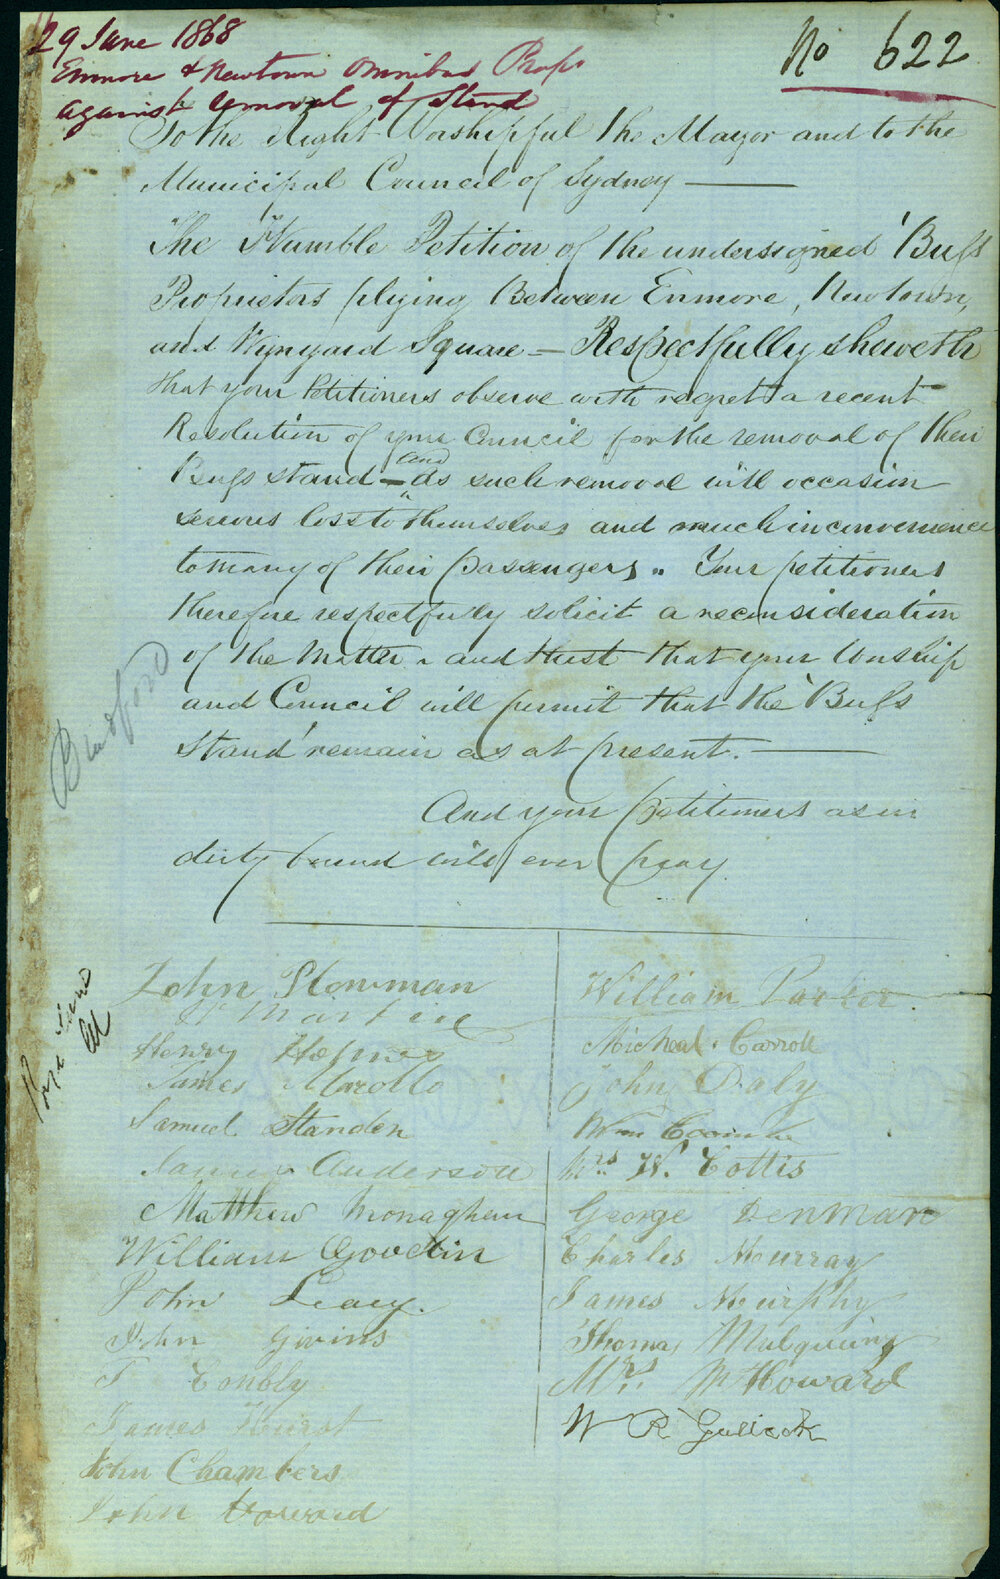 29 June 1868
Enmore & Newtown Omnibus Props
against removal of Stand
No 622
To the Right Worshipful the Mayor and to the
Municipal Council of Sydney
The Humble Petition of the underssigned 'Buss
Proprietors plying Between Enmore, Newtown,
and Wynyard Square = Respectfully sheweth
that your Petitioners observe with regret a recent
Resolution of your Council for the removal of their
Buss stand - and as such removal will occasion
serious loss to themselves and much inconvenience
to many of their passengers. Your petitioners
therefore respectfully solicit a reconsideration
of the matter and trust that your Worship
and Council will permit that the 'Buss
Stand' remain as at present.
And your petitioners as in
duty bound will ever pray.
John Plowman
Martin
Henry
James
Samuel Standen
Anderson
Matthew Monaghan
William Goveein
John Leacy.
John Givins
T Conbly
James Hurst
John Chambers
John Howard
William Parker
Micheal Carroll
John Daly
Wm
Mrs W. Cottis
George Denman
Charles Murray
James Murphy
Thomas Mulqueeny
Mrs M Howard
W R Gullick